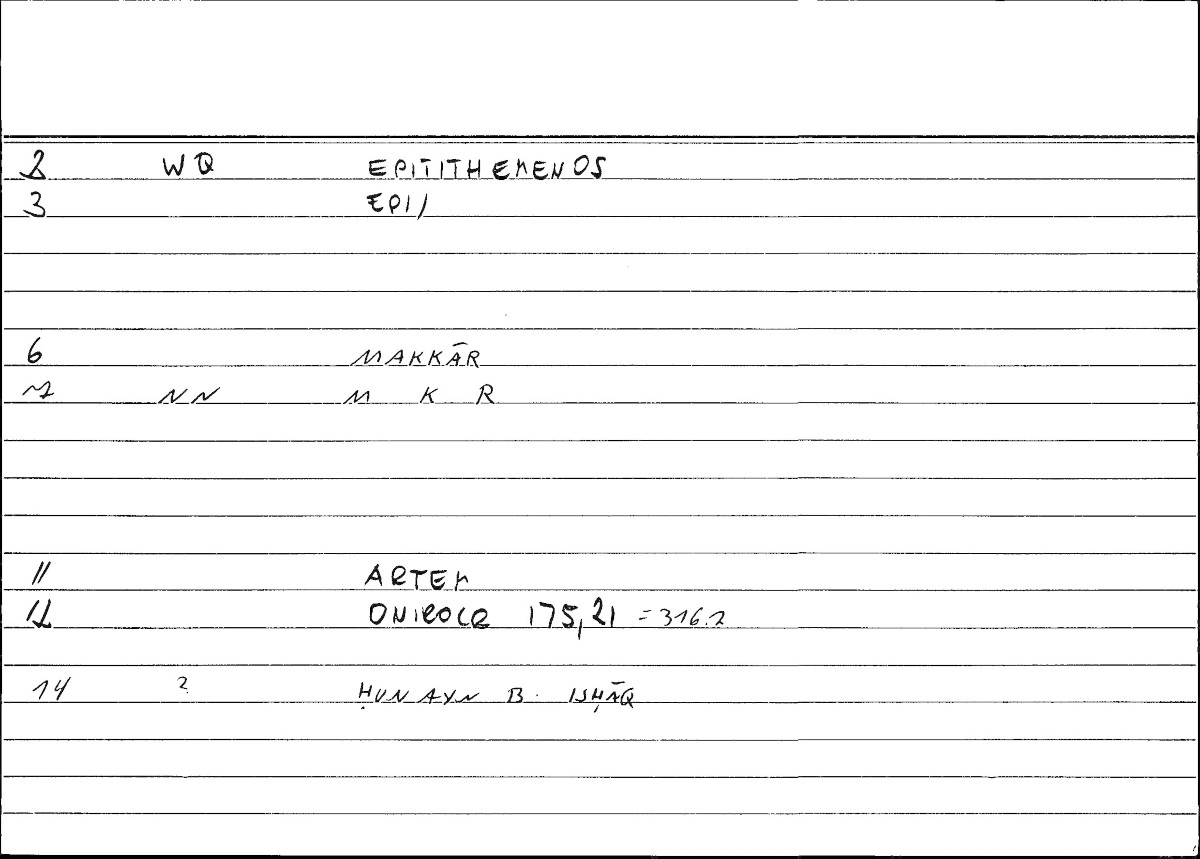 2 WQ EPITITHEMENOS
3 EPI/
6 MAKKĀR
7 NN M K R
11 ARTEM
12 ONIROCR 175,21 =316.2
14 2 ḤUNAYN B. ISḤĀQ